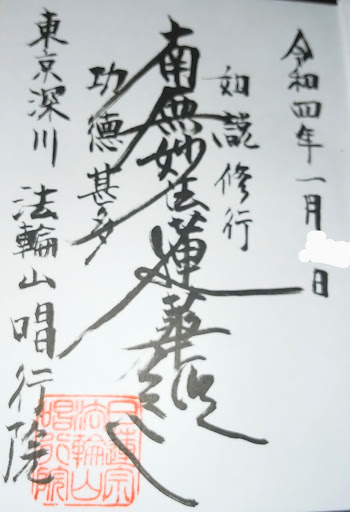 令和四年一月 日
如説修行
南無妙法蓮華経
功徳甚多
東京深川 法輪山唱行院
日蓮宗
法輪山
唱行院